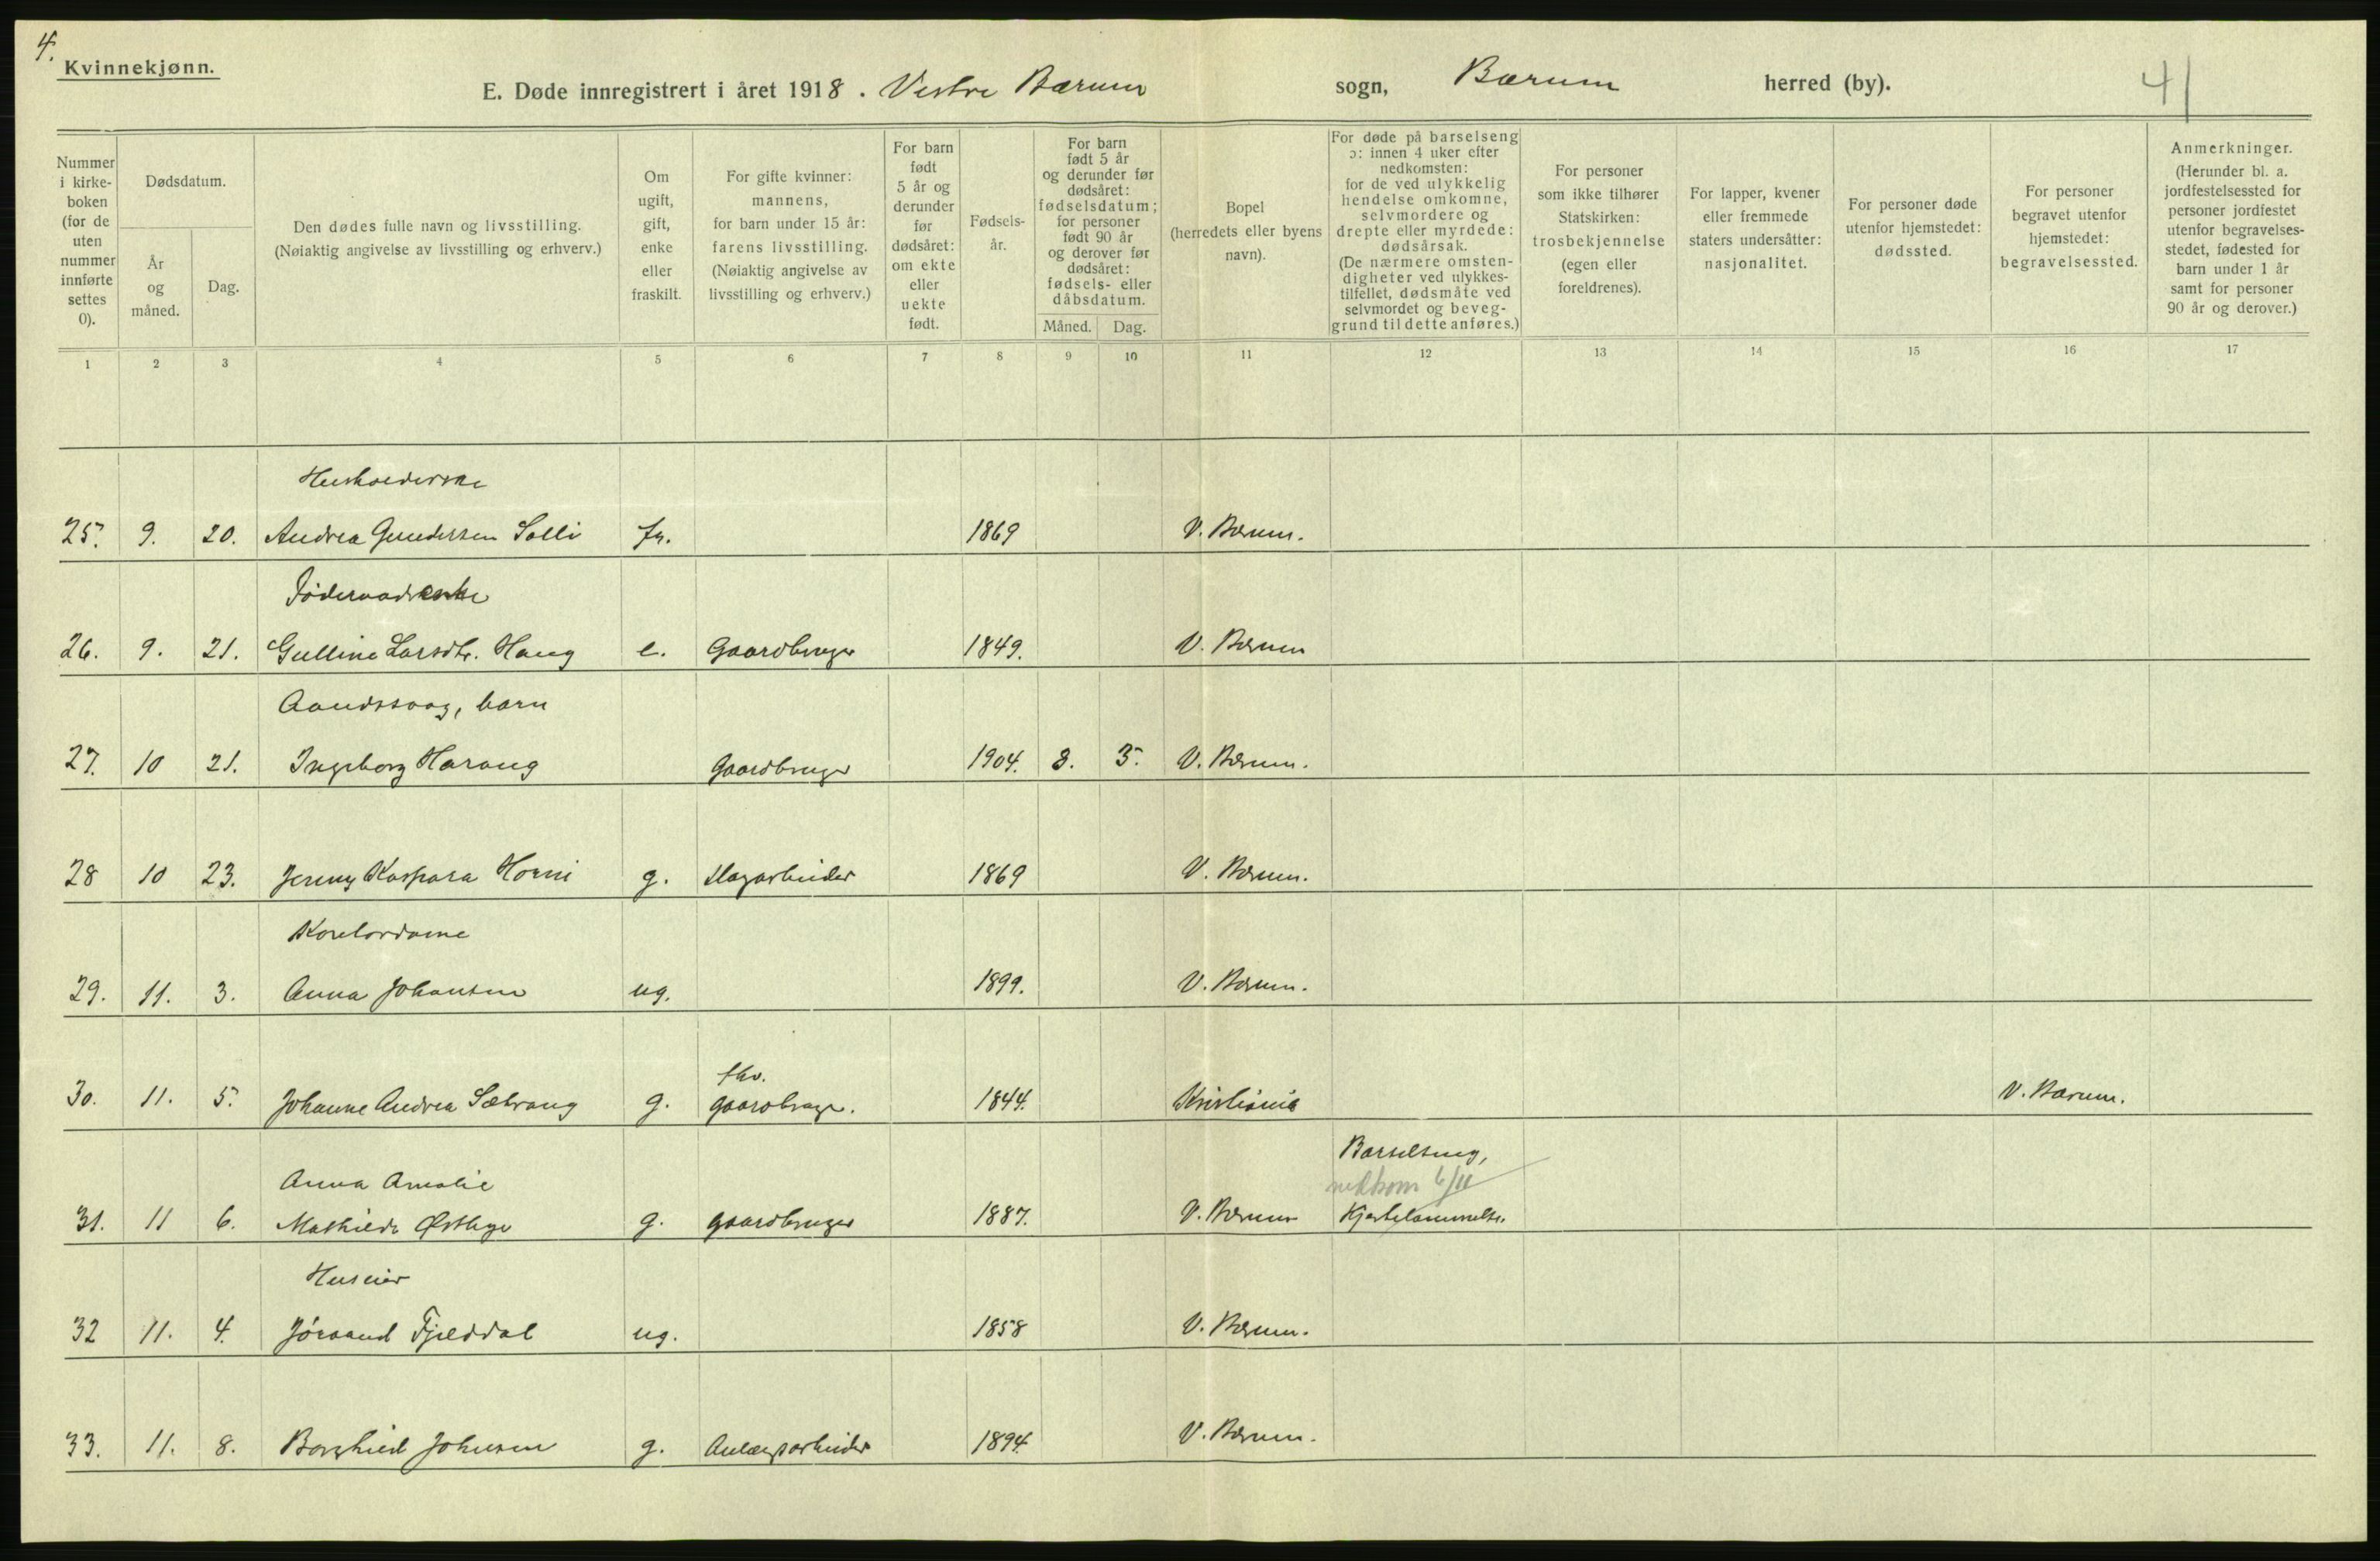 4.
Kvinnekjønn.
E. Døde innregistrert i året 1918. Vestre Bærum sogn, Bærum herred (by).
41
Nummer i kirke-boken (for de uten nummer innførte settes 0).
Dødsdatum.
År og måned.
Dag.
Den dødes fulle navn og livsstilling.
(Nøiaktig angivelse av livsstilling og erhverv.)
Om ugift, gift, enke eller fraskilt.
For gifte kvinner: mannens, for barn under 15 år: farens livsstilling. (Nøiaktig angivelse av livsstilling og erhverv.)
For barn født 5 år og derunder før dødsåret: om ekte eller uekte født.
Fødsels-år.
For barn født 5 år og derunder før dødsåret: fødselsdatum; for personer født 90 år og derover før dødsåret: fødsels- eller dåbsdatum.
Måned.
Dag.
Bopel (herredets eller byens navn).
For døde på barselseng ɔ: innen 4 uker efter nedkomsten: for de ved ulykkelig hendelse omkomne, selvmordere og drepte eller myrdede: dødsårsak. (De nærmere omsten-digheter ved ulykkes-tilfellet, dødsmåte ved selvmordet og beveg-grund til dette anføres.)
For personer som ikke tilhører Statskirken: trosbekjennelse (egen eller foreldrenes).
For lapper, kvener eller fremmede staters undersåtter: nasjonalitet.
For personer døde utenfor hjemstedet: dødssted.
For personer begravet utenfor hjemstedet: begravelsessted.
Anmerkninger. (Herunder bl. a. jordfestelsessted for personer jordfestet utenfor begravelses-stedet, fødested for barn under 1 år samt for personer 90 år og derover.)
1 2 3 4 5 6 7 8 9 10 11 12 13 14 15 16 17
Husholderske
25. 9. 20. Andrea Gundersen Solli fr. 1869 V. Bærum.
Føderaadsenke
26. 9. 21. Gulline Larsdtr. Haug e. Gaardbruger 1849. V. Bærum
Aandssvag, barn
27. 10 21. Ingeborg Harang Gaardbruger 1904. 3. V. Bærum.
28 10 23. Jenny Kaspara Horni g. Dagarbeider 1869 V. Bærum.
Kontordame
29. 11. 3. Anna Johansen ug. 1899. V. Bærum.
fhv.
30. 11. 5. Johanne Andrea Sætrang g. gaardbruger. 1844. Kristiania V. Bærum.
Barselseng,
Anna Amalie nedkom 6/11
31. 11 6. Mathilde Østbye g. gaardbruger 1887. V. Bærum Hjertelammelse.
Huseier
32 11. 4. Jøraand Fjelddal ug. 1858 V. Bærum.
33. 11. 8. Borghild Johnsen g. Anlægsarbeider 1894. V. Bærum.